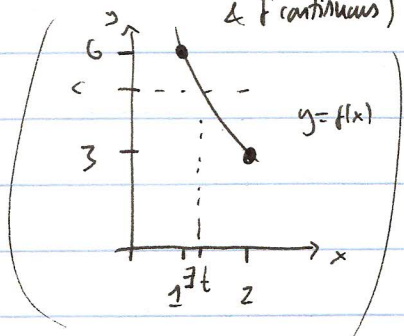 & f continuous)
y
6
c
y=f(x)
3
x
1 ∃t 2